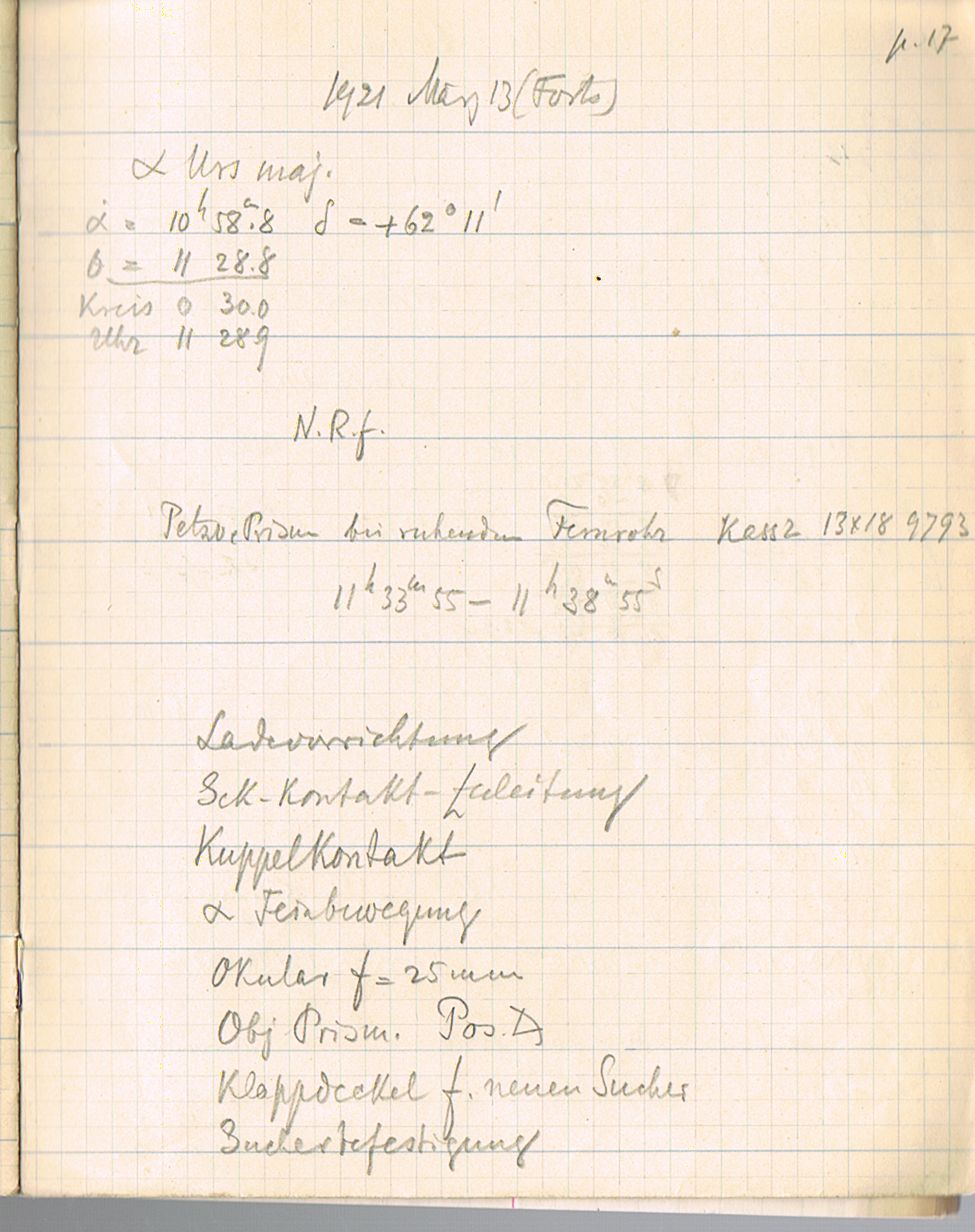 p. 17
1921 März 13 (Forts)
α Urs maj.
α = 10ʰ 58ᵐ.8 δ = +62° 11'
θ = 11 28.8
Kreis 0 30.0
Uhr 11 28 9
N. R. f.
Petzv. Prism bei ruhendem Fernrohr Kass 2 13x18 9793
11ʰ 33ᵐ 55 – 11ʰ 38ᵐ 55ˢ
Ladevorrichtung
Sek-Kontakt-Zuleitung
Kuppelkontakt
α Feinbewegung
Okular f = 25 mm
Obj Prism. Pos.
Klappdeckel f. neuen Sucher
Sucherbefestigung